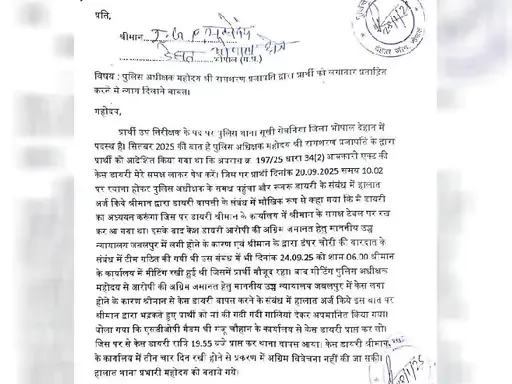 प्रति,
श्रीमान्
देहात भोपाल
भोपाल (म.प्र.)
विषय : पुलिस अधीक्षक महोदय श्री रामशरण प्रजापति द्वारा प्रार्थी को लगातार प्रताड़ित
करने से न्याय दिलाने बावत।
महोदय,
प्रार्थी उप निरीक्षक के पद पर पुलिस थाना सूखी सेवनिया जिला भोपाल देहात में
पदस्थ है। सितम्बर 2025 की बात है पुलिस अधिक्षक महोदय श्री रामशरण प्रजापति के द्वारा
प्रार्थी को आदेशित किया गया था कि अपराध क्र. 197/25 धारा 34(2) आबकारी एक्ट की
केस डायरी मेरे समक्ष लाकर पेश करें। जिस पर प्रार्थी दिनांक 20.09.2025 समय 10.02
पर रवाना होकर पुलिस अधीक्षक के समक्ष पहुंचा और रूबरू डायरी के संबंध में हालात
अर्ज किये श्रीमान द्वारा डायरी वापसी के संबंध में मौखिक रूप से कहा गया कि मैं डायरी
का अध्ययन करूंगा जिस पर डायरी श्रीमान के कार्यालय में श्रीमान के समक्ष टेबल पर रख
कर आ गया था। इसके बाद केश डायरी आरोपी की अग्रिम जमानत हेतु माननीय उच्च
न्यायालय जबलपुर में लगी होने के कारण एवं श्रीमान के द्वारा डंपर चोरी की वारदात के
संबंध में टीम गठित की गयी थी उस संबंध में भी दिनांक 24.09.25 को शाम 06.00 श्रीमान
के कार्यालय में मीटिंग रखी हुई थी जिसमें प्रार्थी मौजूद रहा। बाद मीटिंग पुलिस अधीक्षक
महोदय से आरोपी की अग्रिम जमानत हेतु माननीय उच्च न्यायालय जबलपुर में केस लगा
होने के कारण श्रीमान से केस डायरी वापन करने के संबंध में हालात अर्ज किये इस बात पर
श्रीमान द्वारा भड़कते हुए प्रार्थी को मां की गदी गदी गालियां देकर अपमानित किया गया।
बोला गया कि एसडीओपी मैडम श्री मंजू चौहान के कार्यालय से केस डायरी प्राप्त कर लो।
जिस पर से केस डायरी रात्रि 19.55 बजे प्राप्त कर थाना वापस आया। केस डायरी श्रीमान
के कार्यालय में तीन चार दिन रखी होने से प्रकरण में अग्रिम विवेचना नहीं की जा सकी।
हालात थाना प्रभारी महोदय को बताये गये।